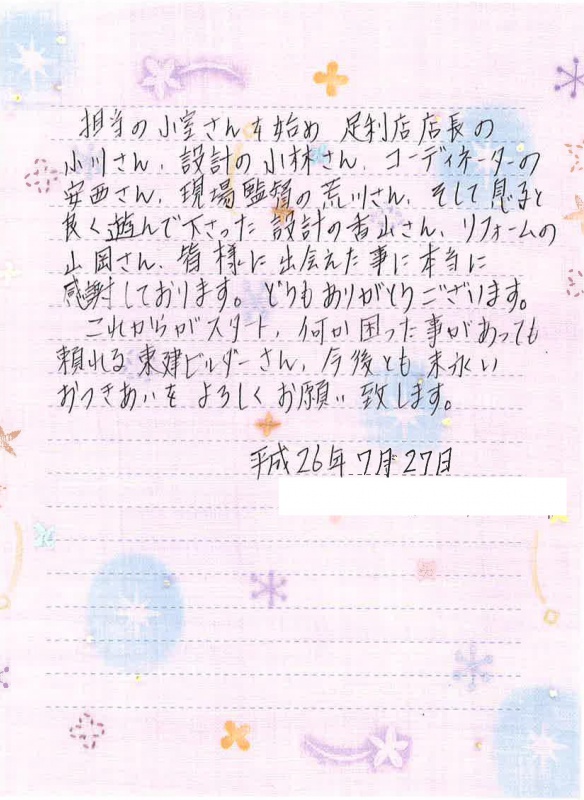 担当の小室さんを始め 足利店店長の
小川さん、設計の小林さん、コーディネーターの
安西さん、現場監督の荒川さん、そして息子と
良く遊んで下さった設計の香山さん、リフォームの
山岡さん、皆様に出会えた事に本当に
感謝しております。どうもありがとうございます。
これからがスタート、何か困った事があっても
頼れる東建ビルダーさん、今後とも末永い
おつきあいをよろしくお願い致します。
平成26年7月27日